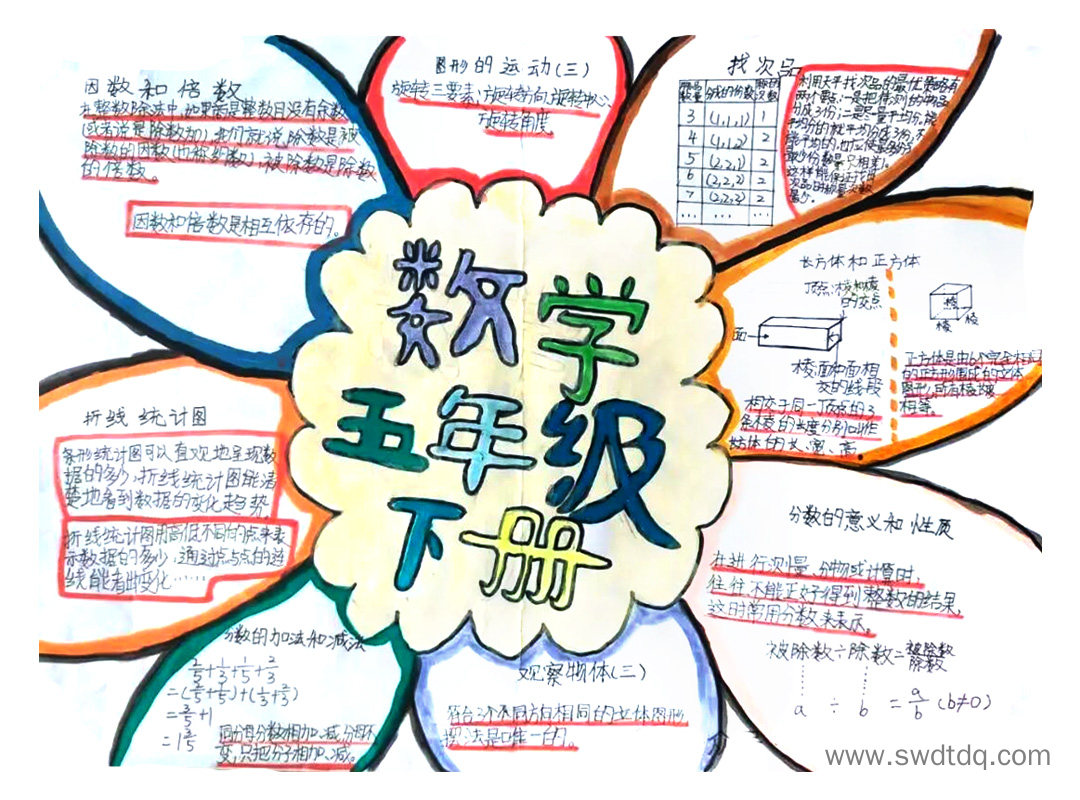 数学
五年级
下册
因数和倍数
在整数除法中,如果商是整数且没有余数
(或者说是除数如),我们就说除数是被
除数的因数(也称约数),被除数是除数
的倍数。
因数和倍数是相互依存的。
图形的运动(三)
旋转三要素:方旋转方向,旋转中心,
旋转角度。
找次品
数量 分成的份数 次数
3 (1,1,1) 1
4 (1,1,2) 2
5 (2,2,1) 2
6 (2,2,2) 2
7 (2,2,3) 2
…… …… …
利用天平找次品的最优策略有
两个要点:一是把待测的物品
分成3份;二是尽量平均分,能
平均分的就平均分成3份,不
能平均的,也应使最多份
最少份数量只相差1。
这样能保证找出
次品的称量次数
最少。
长方体和正方体
顶点:棱和棱
的交点
面
棱:面和面相
交的线段
相交于同一顶点的3
条棱的长度分别叫作
长方体的长、宽、高。
棱
棱 棱
正方体是由6个完全相同
的正方形围成的立体
图形,所有棱长
相等。
折线统计图
条形统计图可以直观地呈现数
据的多少,折线统计图能清
楚地看到数据的变化趋势。
折线统计图用高低不同的点来表
示数据的多少,通过点与点的连
线能看出变化……
分数的意义和性质
在进行测量、分物或计算时,
往往不能正好得到整数的结果,
这时常用分数来表示。
被除数÷除数=被除数/除数
a ÷ b = a/b (b≠0)
分数的加法和减法
2/5+1/3+1/5+2/3
=(2/5+1/5)+(1/3+2/3)
=3/5+1
=1 3/5
同分母分数相加、减,分母不
变,只把分子相加、减。
观察物体(三)
符合3个不同方向相同的立体图形
摆法是唯一的。
www.swdtdq.com